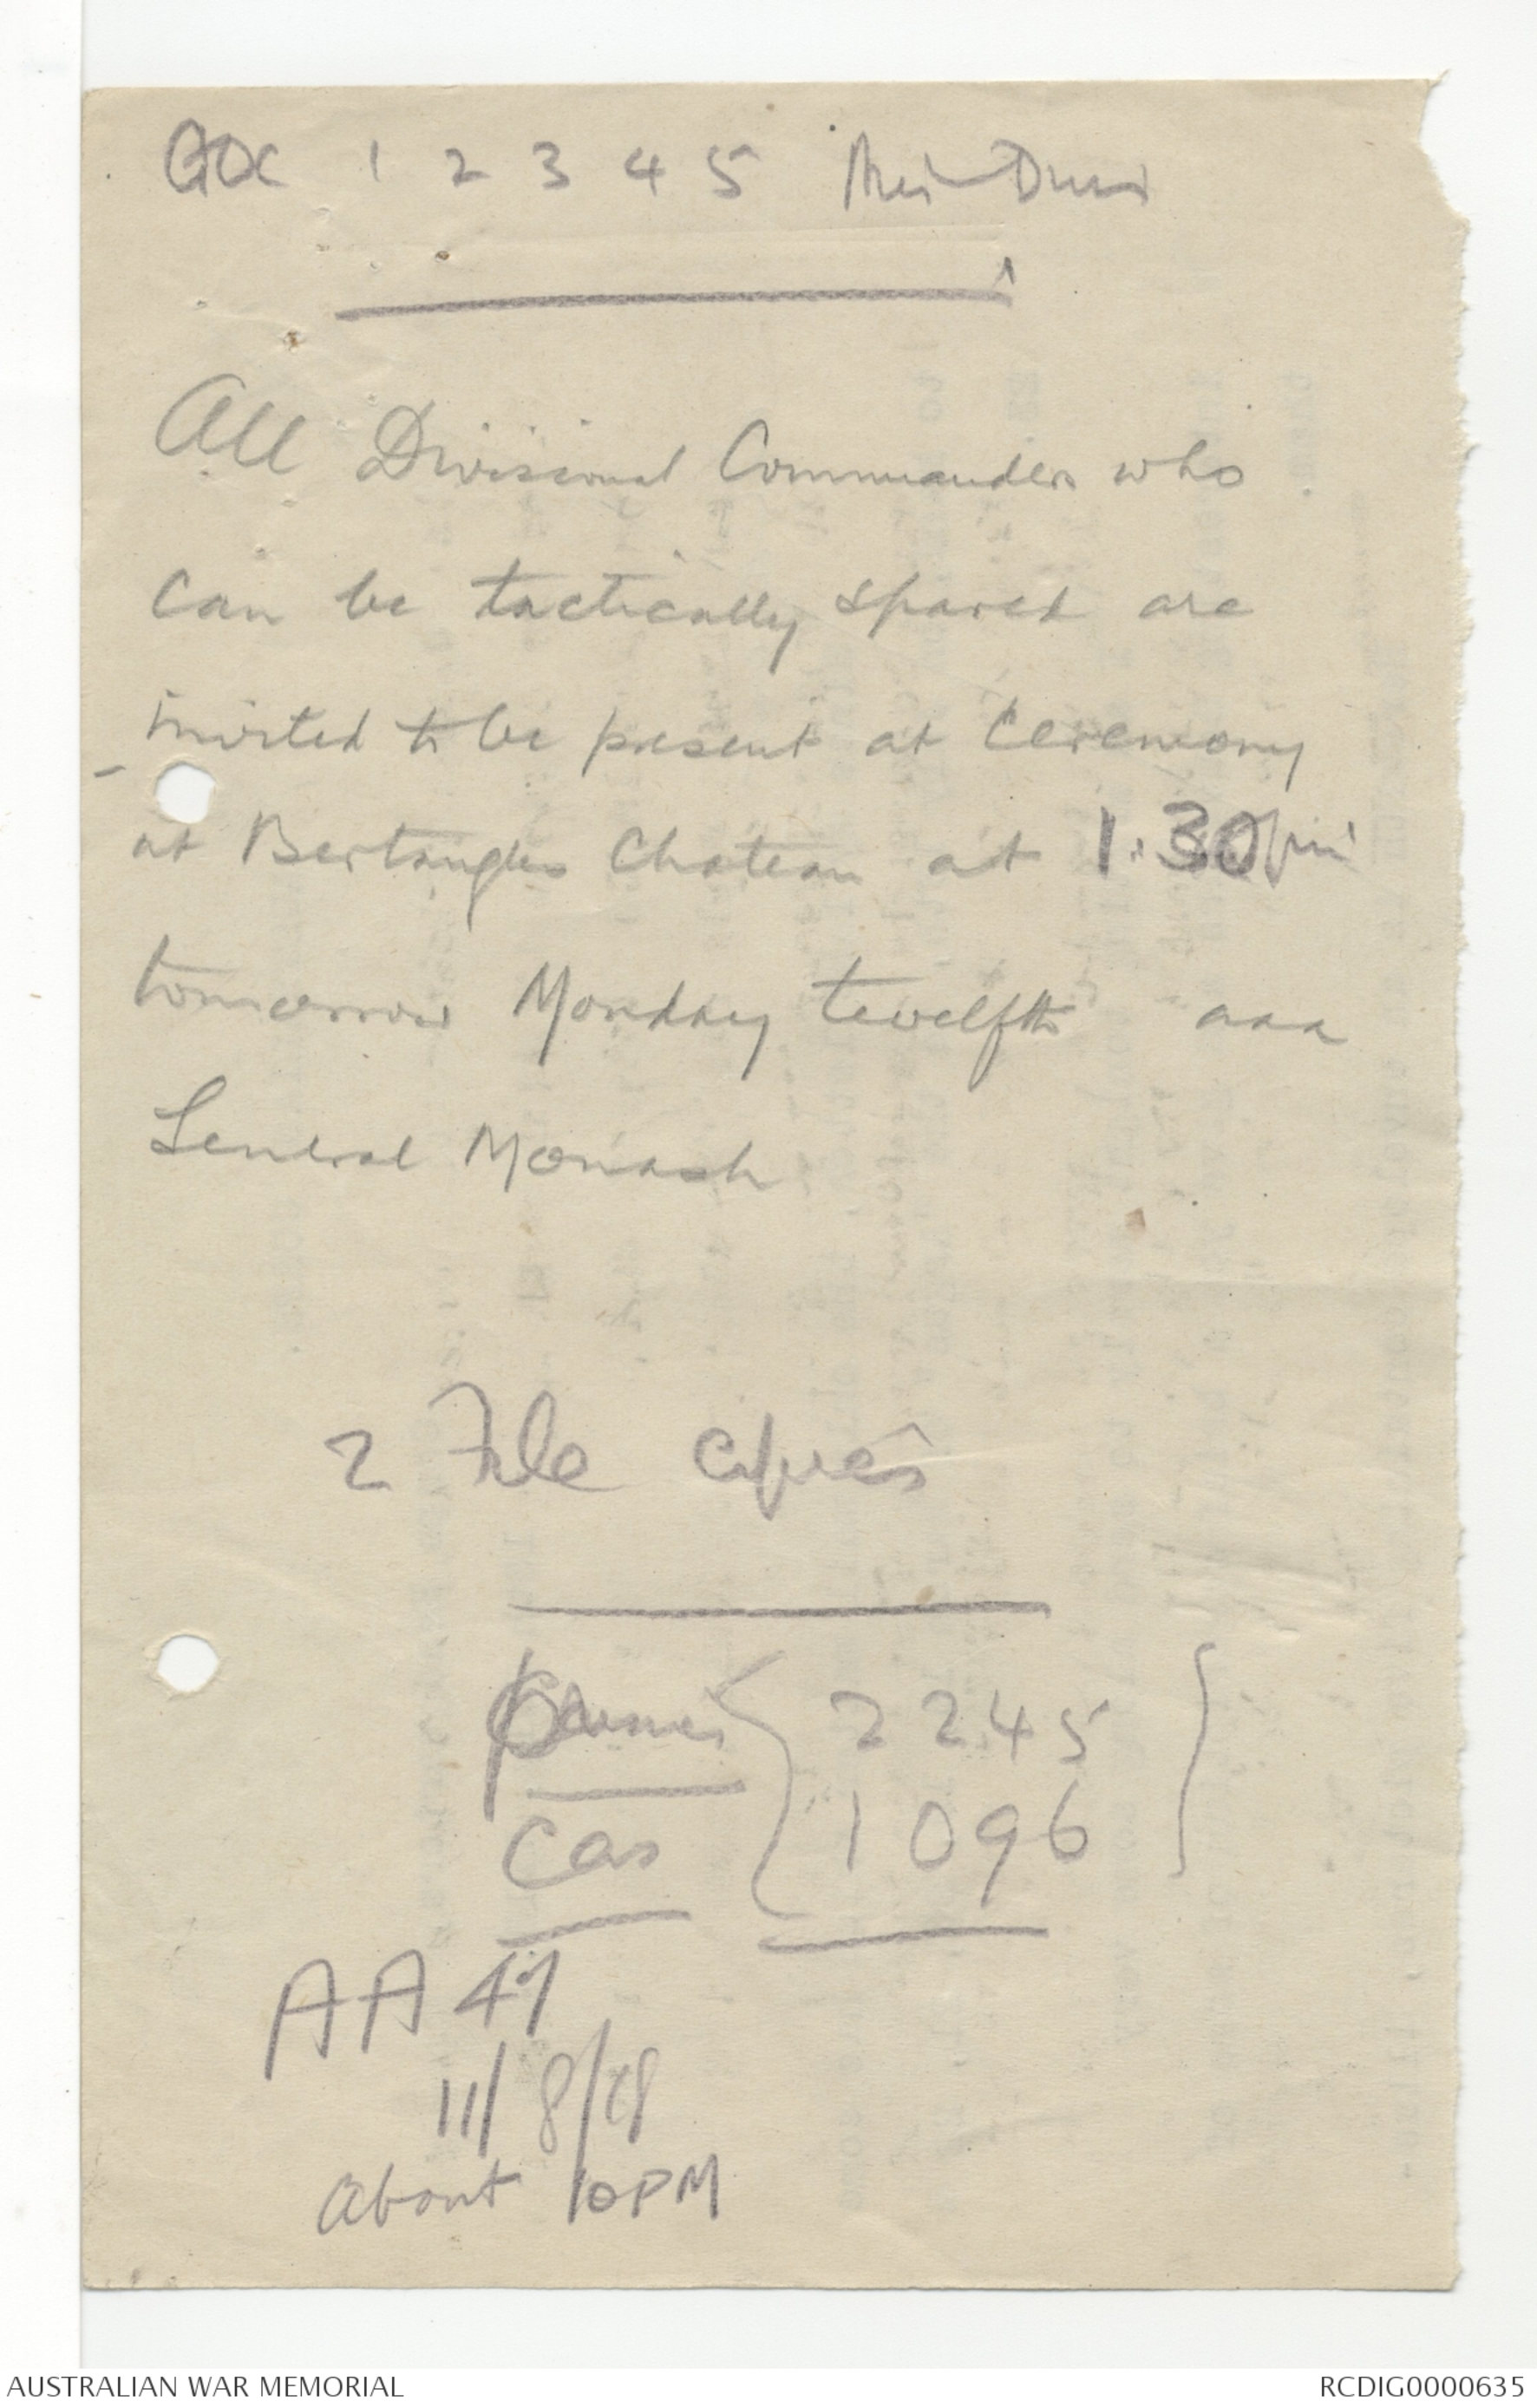 GOC 1 2 3 4 5 Aus Divns
All Divisional Commanders who
can be tactically spared are
invited to be present at Ceremony
at Bertangles Chateau at 1.30 pm
tomorrow Monday twelfth aaa
General Monash
2 File copies
2245
Cas 1096
AA 47
11/8/18
About 10PM
AUSTRALIAN WAR MEMORIAL
RCDIG0000635